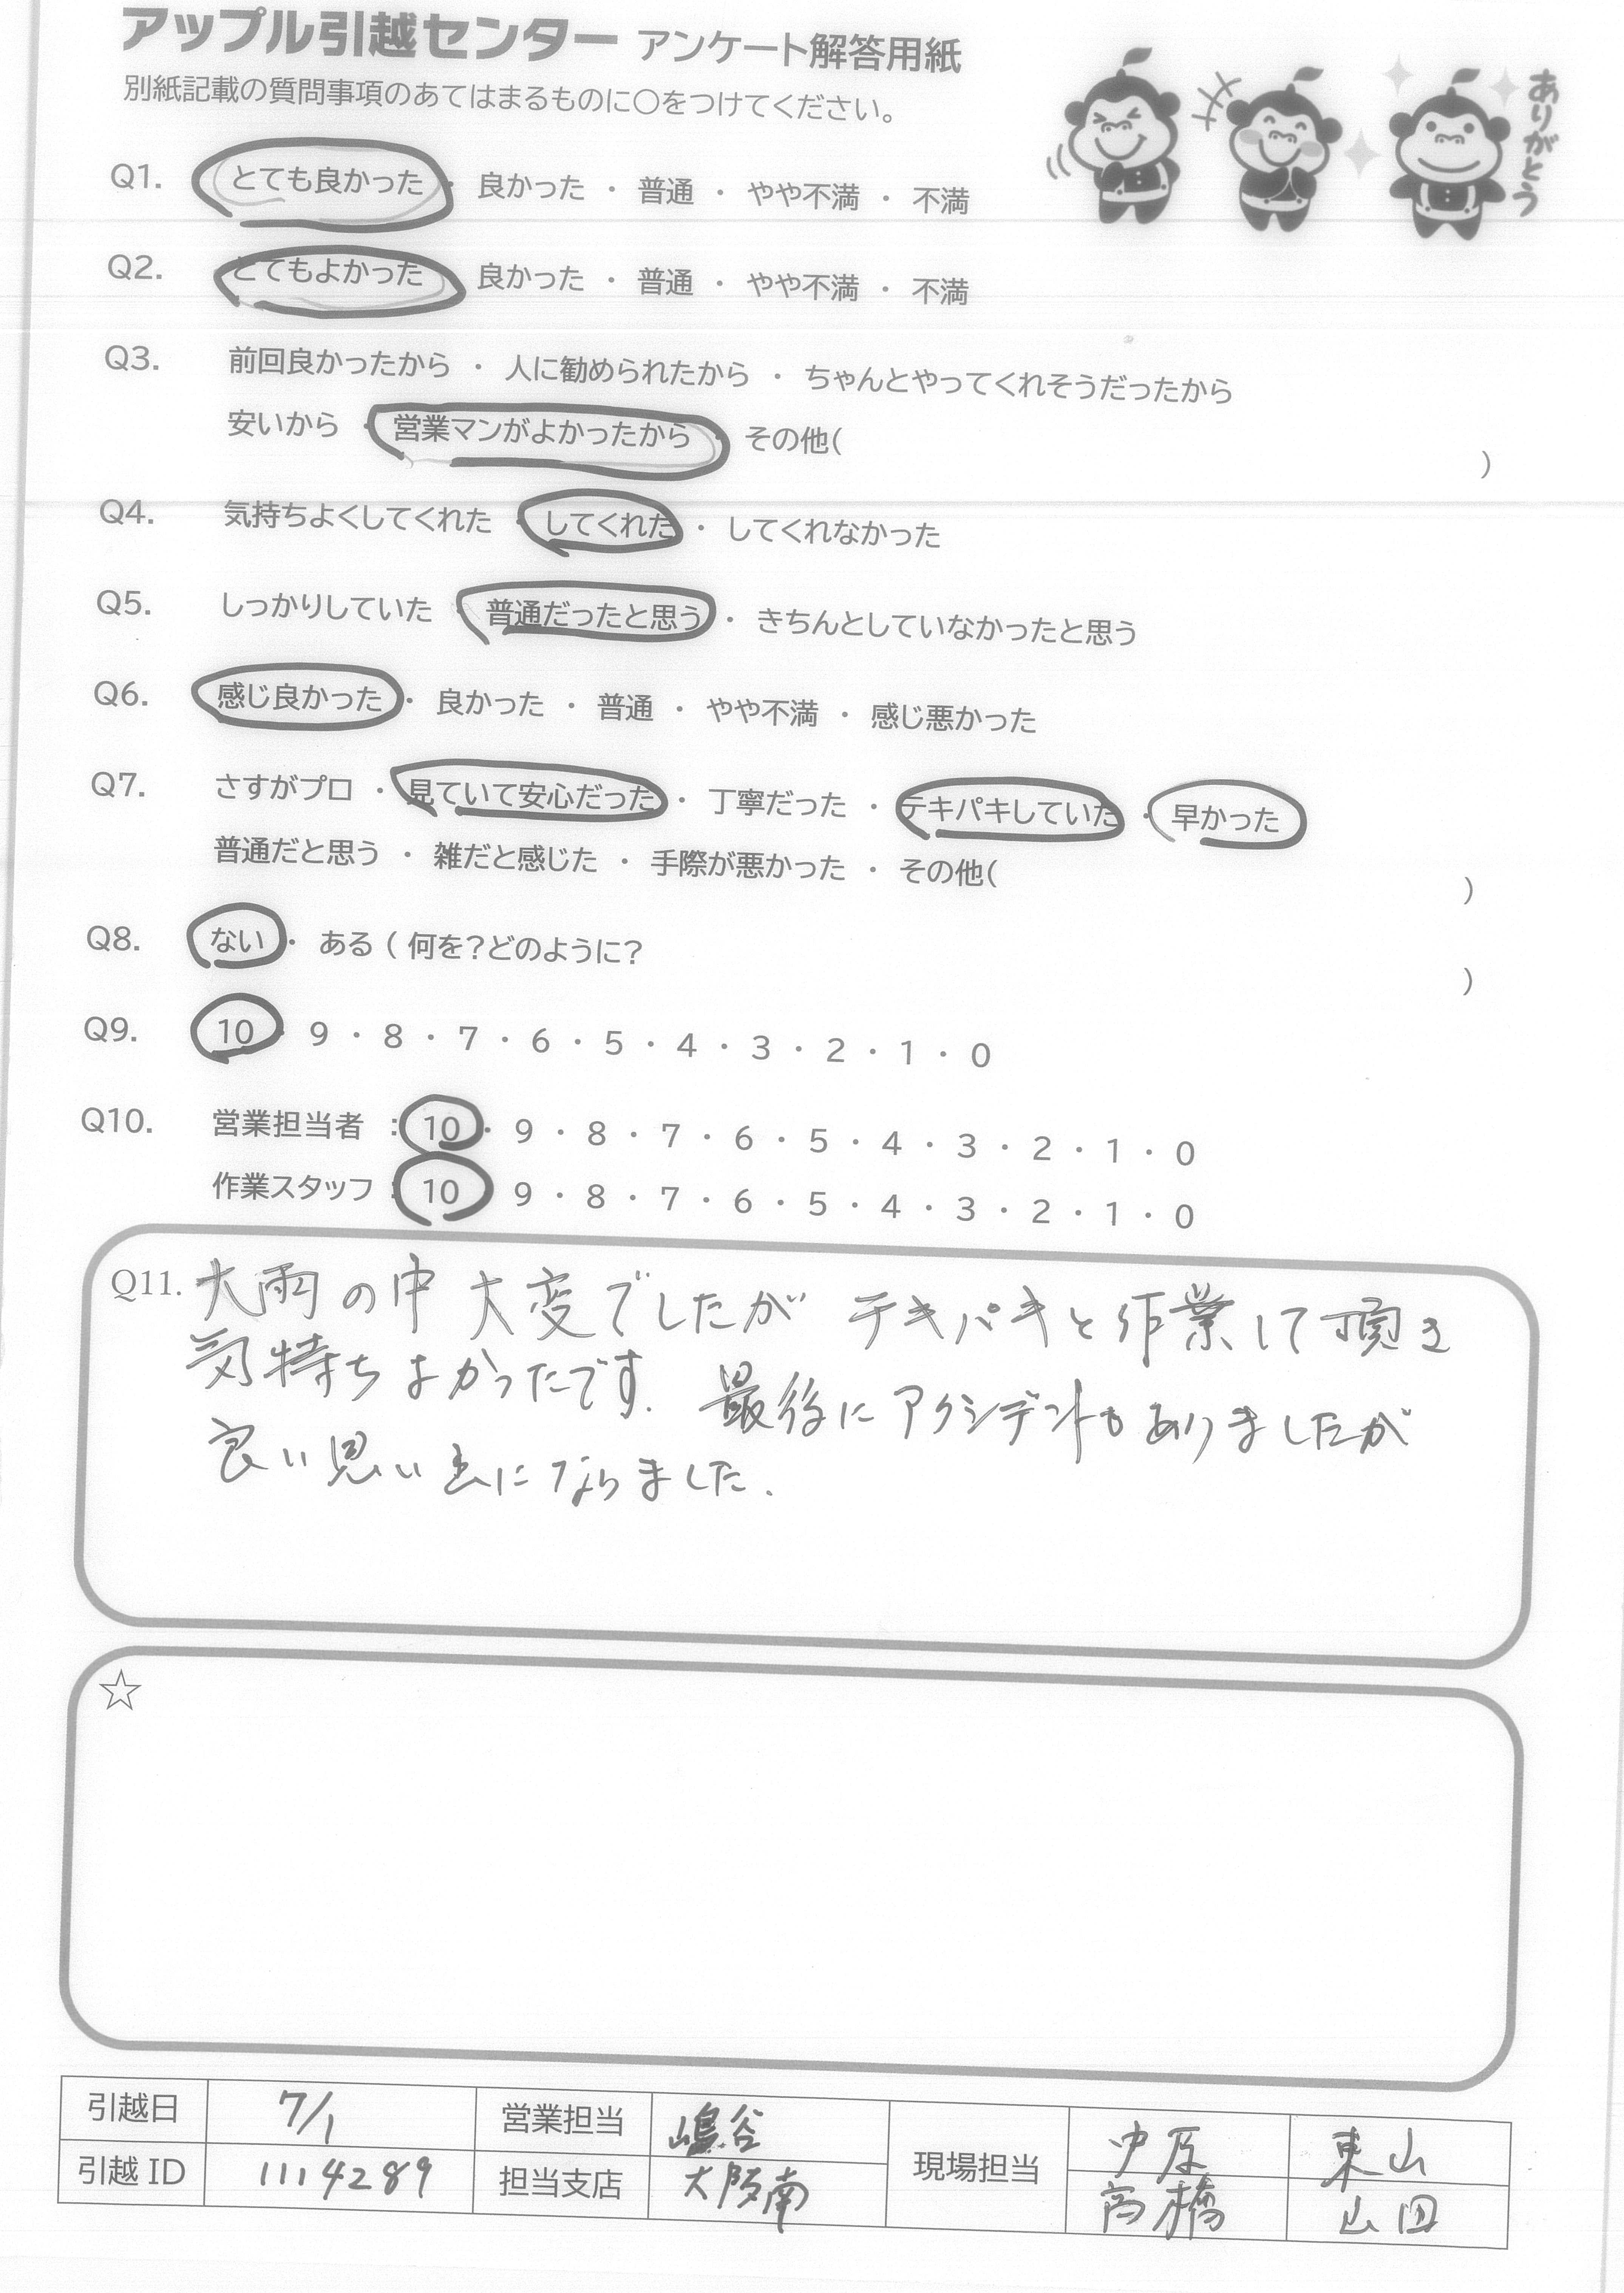 アップル引越センター アンケート解答用紙
別紙記載の質問事項のあてはまるものに○をつけてください。
ありがとう
Q1. とても良かった ・ 良かった ・ 普通 ・ やや不満 ・ 不満
Q2. とてもよかった 良かった ・ 普通 ・ やや不満 ・ 不満
Q3. 前回良かったから ・ 人に勧められたから ・ ちゃんとやってくれそうだったから
安いから ・ 営業マンがよかったから ・ その他( )
Q4. 気持ちよくしてくれた ・ してくれた ・ してくれなかった
Q5. しっかりしていた ・ 普通だったと思う ・ きちんとしていなかったと思う
Q6. 感じ良かった ・ 良かった ・ 普通 ・ やや不満 ・ 感じ悪かった
Q7. さすがプロ ・ 見ていて安心だった ・ 丁寧だった ・ テキパキしていた ・ 早かった
普通だと思う ・ 雑だと感じた ・ 手際が悪かった ・ その他( )
Q8. ない ・ ある ( 何を?どのように? )
Q9. 10 ・ 9 ・ 8 ・ 7 ・ 6 ・ 5 ・ 4 ・ 3 ・ 2 ・ 1 ・ 0
Q10. 営業担当者 : 10 ・ 9 ・ 8 ・ 7 ・ 6 ・ 5 ・ 4 ・ 3 ・ 2 ・ 1 ・ 0
作業スタッフ : 10 ・ 9 ・ 8 ・ 7 ・ 6 ・ 5 ・ 4 ・ 3 ・ 2 ・ 1 ・ 0
Q11. 大雨の中 大変でしたが テキパキと作業して頂き
気持ちよかったです. 最後にアクシデントもありましたが
良い思い出になりました.
☆
引越日 7/1 営業担当 嶋谷 現場担当 中原 東山
引越 ID 1114289 担当支店 大阪南 高橋 山田